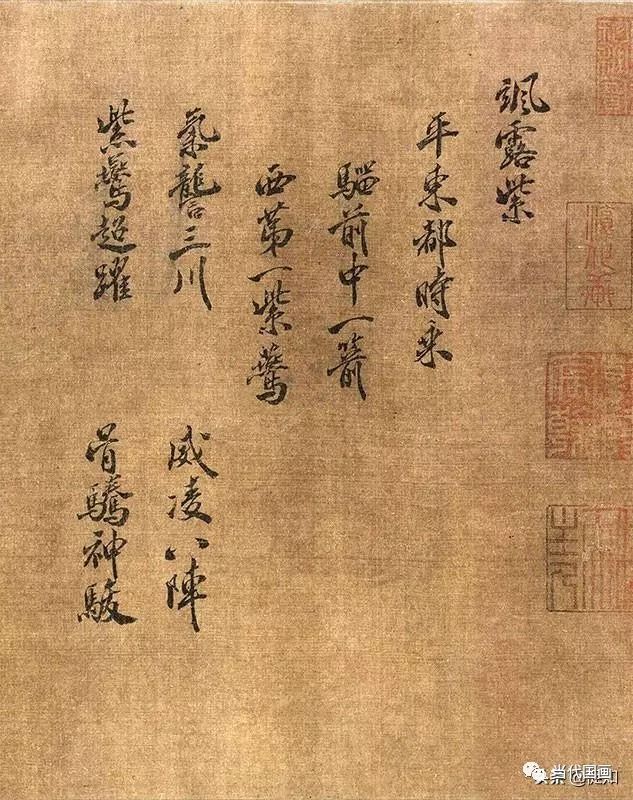 颯露紫
平東都時乘
騮前中一箭
西第一紫鷰
氣讋三川 威凌八陣
紫鷰超躍 骨驣神駿
当代国画